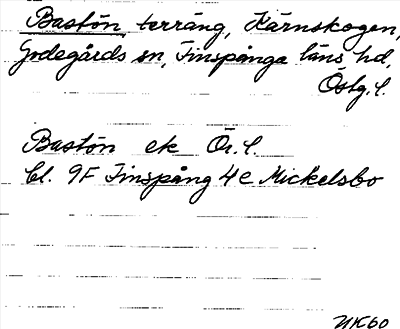 Bastön, terräng, Kärnskogen,
Godegårds sn, Finspånga läns hd,
Östg. l.
Bastön ek Ör. l.
bl. 9F Finspång 4e Mickelsbo
NK60